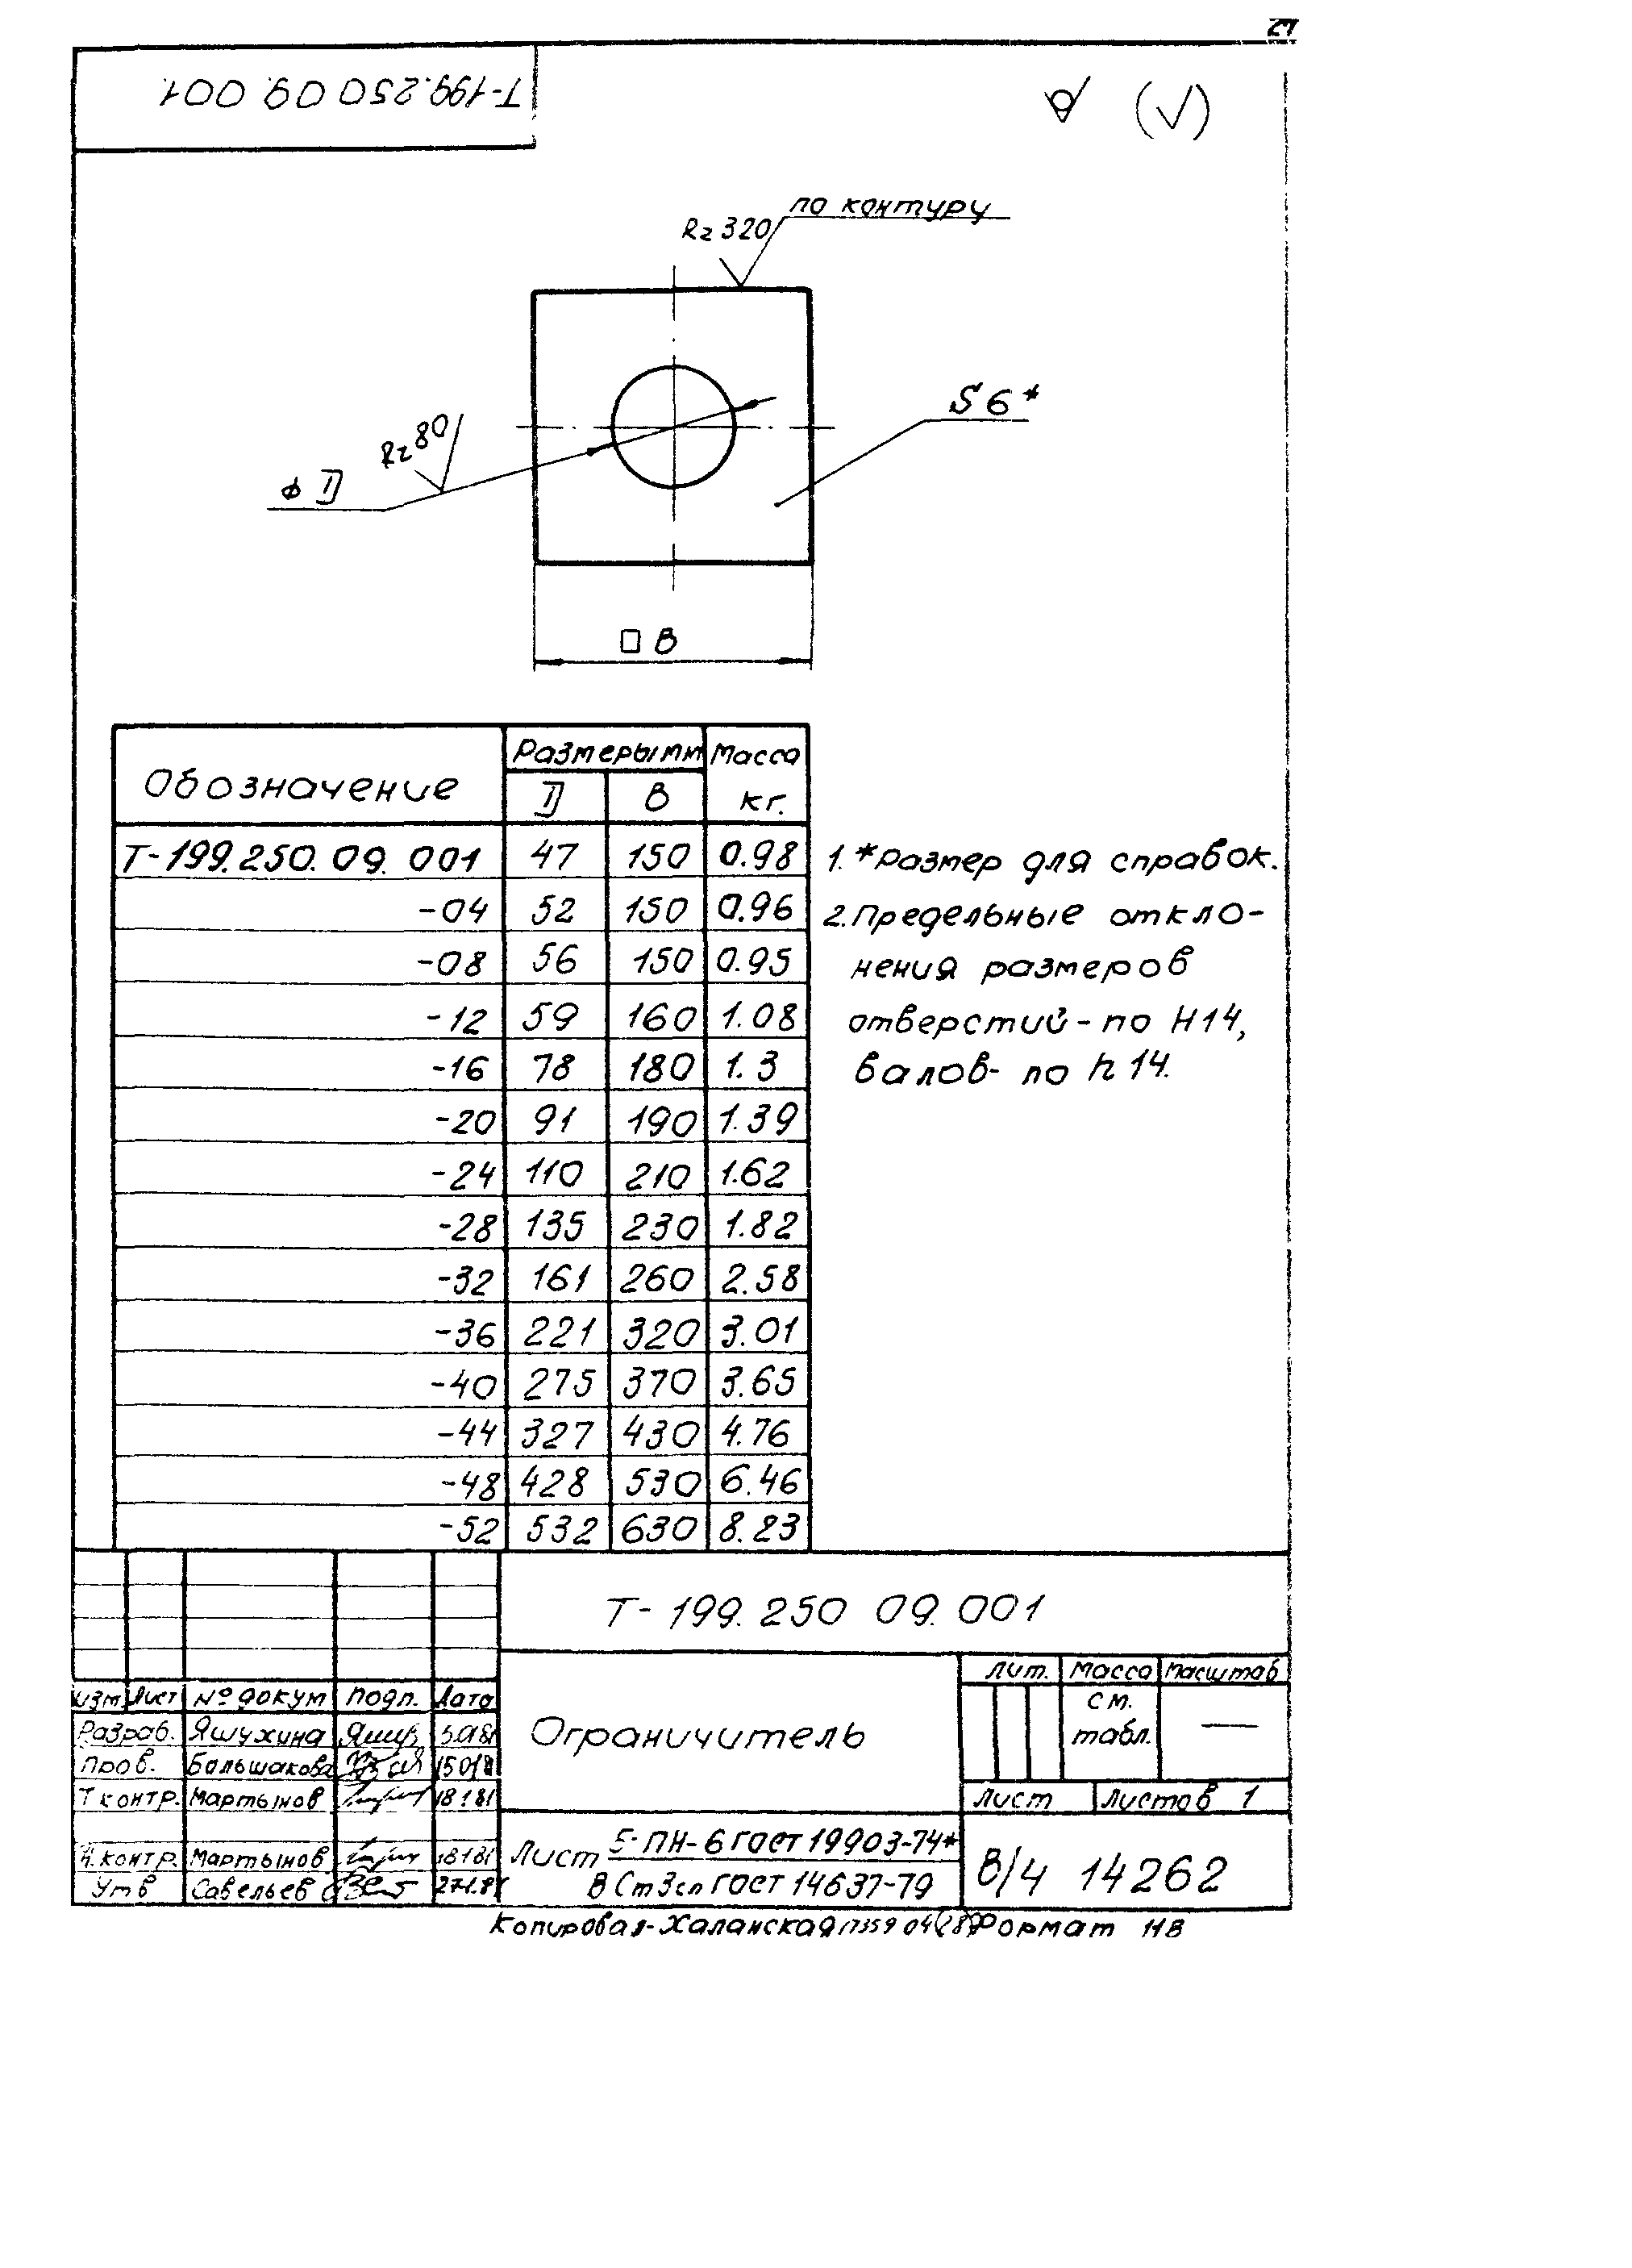 Т-199.250 09.001
(√)
Rz 320 по контуру
S 6*
Rz 80
⌀ D
□ В
Обозначение Размеры мм Масса кг.
D В
Т-199.250.09.001 47 150 0.98
-04 52 150 0.96
-08 56 150 0.95
-12 59 160 1.08
-16 78 180 1.3
-20 91 190 1.39
-24 110 210 1.62
-28 135 230 1.82
-32 161 260 2.58
-36 221 320 3.01
-40 275 370 3.65
-44 327 430 4.76
-48 428 530 6.46
-52 532 630 8.23
1. *Размер для справок.
2. Предельные откло-
нения размеров
отверстий - по Н14,
валов - по h 14.
Т-199.250 09.001
Лит. Масса Масштаб
см. табл. —
Изм. Лист № докум Подп. Дата
Разраб. Яшухина
Пров. Большакова
Т контр. Мартынов 18.1.81
Н. контр. Мартынов 18.1.81
Утв Савельев 27.1.81
Ограничитель
Лист Листов 1
Лист Б-ПН-6 ГОСТ 19903-74*
В Ст3сп ГОСТ 14637-79
В/ч 14262
Копировал- Халанская 17359 04 (28) Формат 11В